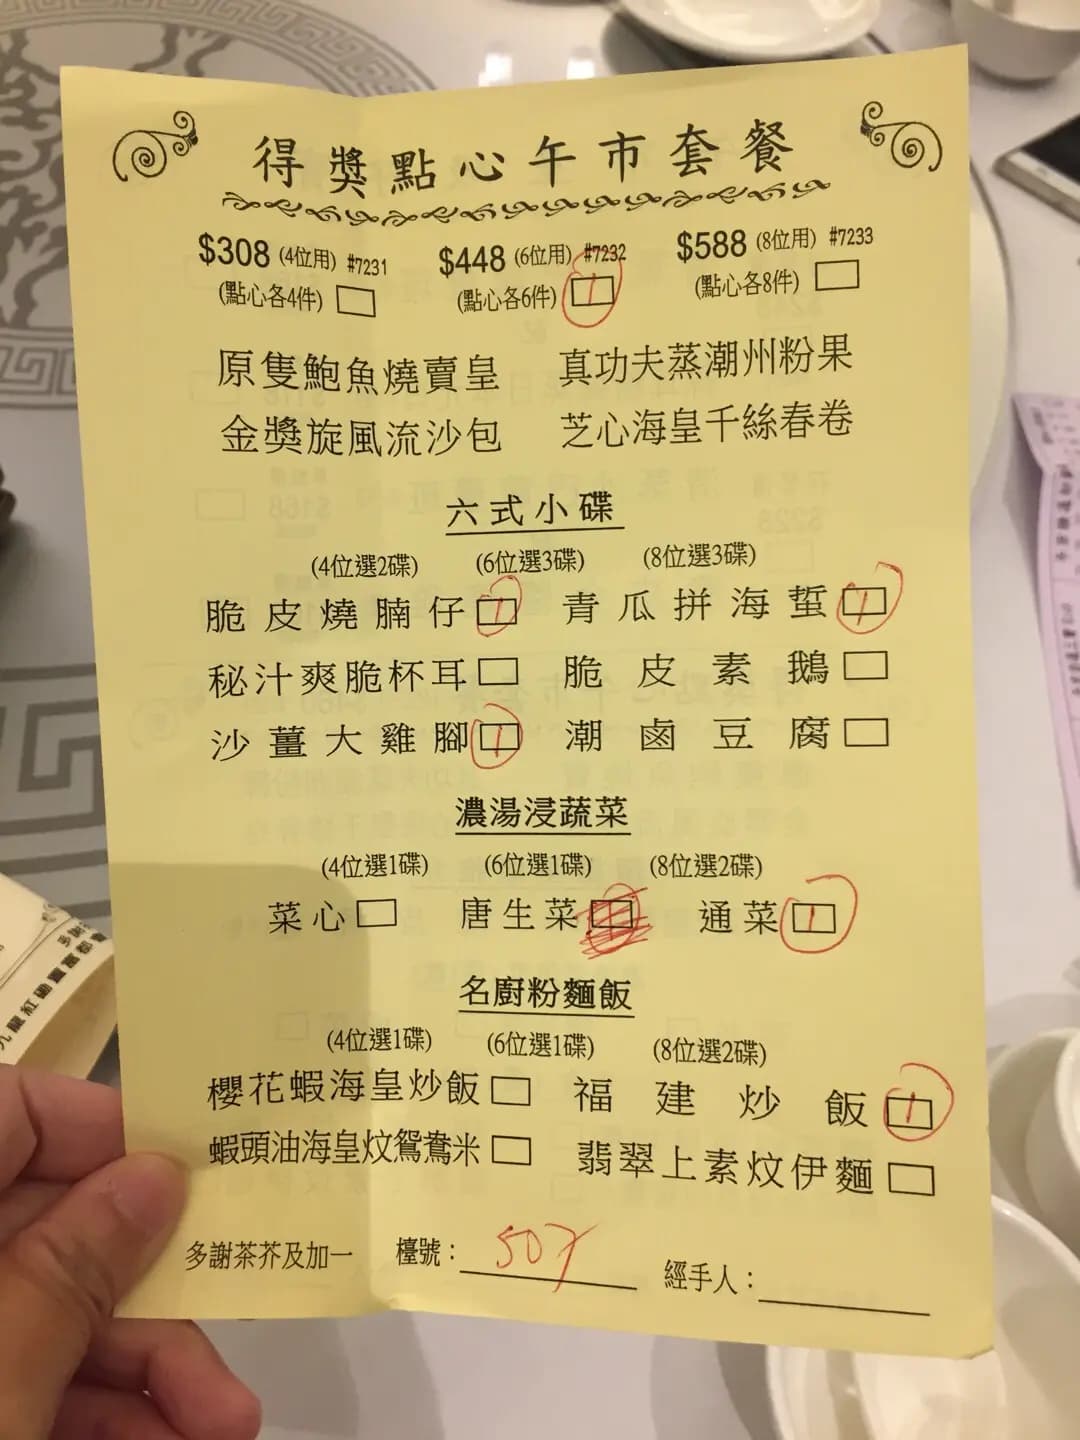 得獎點心午市套餐
$308 (4位用) #7231 $448 (6位用) #7232 $588 (8位用) #7233
(點心各4件) (點心各6件) 1 (點心各8件)
原隻鮑魚燒賣皇 真功夫蒸潮州粉果
金獎旋風流沙包 芝心海皇千絲春卷
六式小碟
(4位選2碟) (6位選3碟) (8位選3碟)
脆皮燒腩仔 1 青瓜拼海蜇 1
秘汁爽脆杯耳 脆皮素鵝
沙薑大雞腳 1 潮鹵豆腐
濃湯浸蔬菜
(4位選1碟) (6位選1碟) (8位選2碟)
菜心 唐生菜 通菜 1
名廚粉麵飯
(4位選1碟) (6位選1碟) (8位選2碟)
櫻花蝦海皇炒飯 福建炒飯 1
蝦頭油海皇炆鴛鴦米 翡翠上素炆伊麵
多謝茶芥及加一 檯號： 507 經手人：